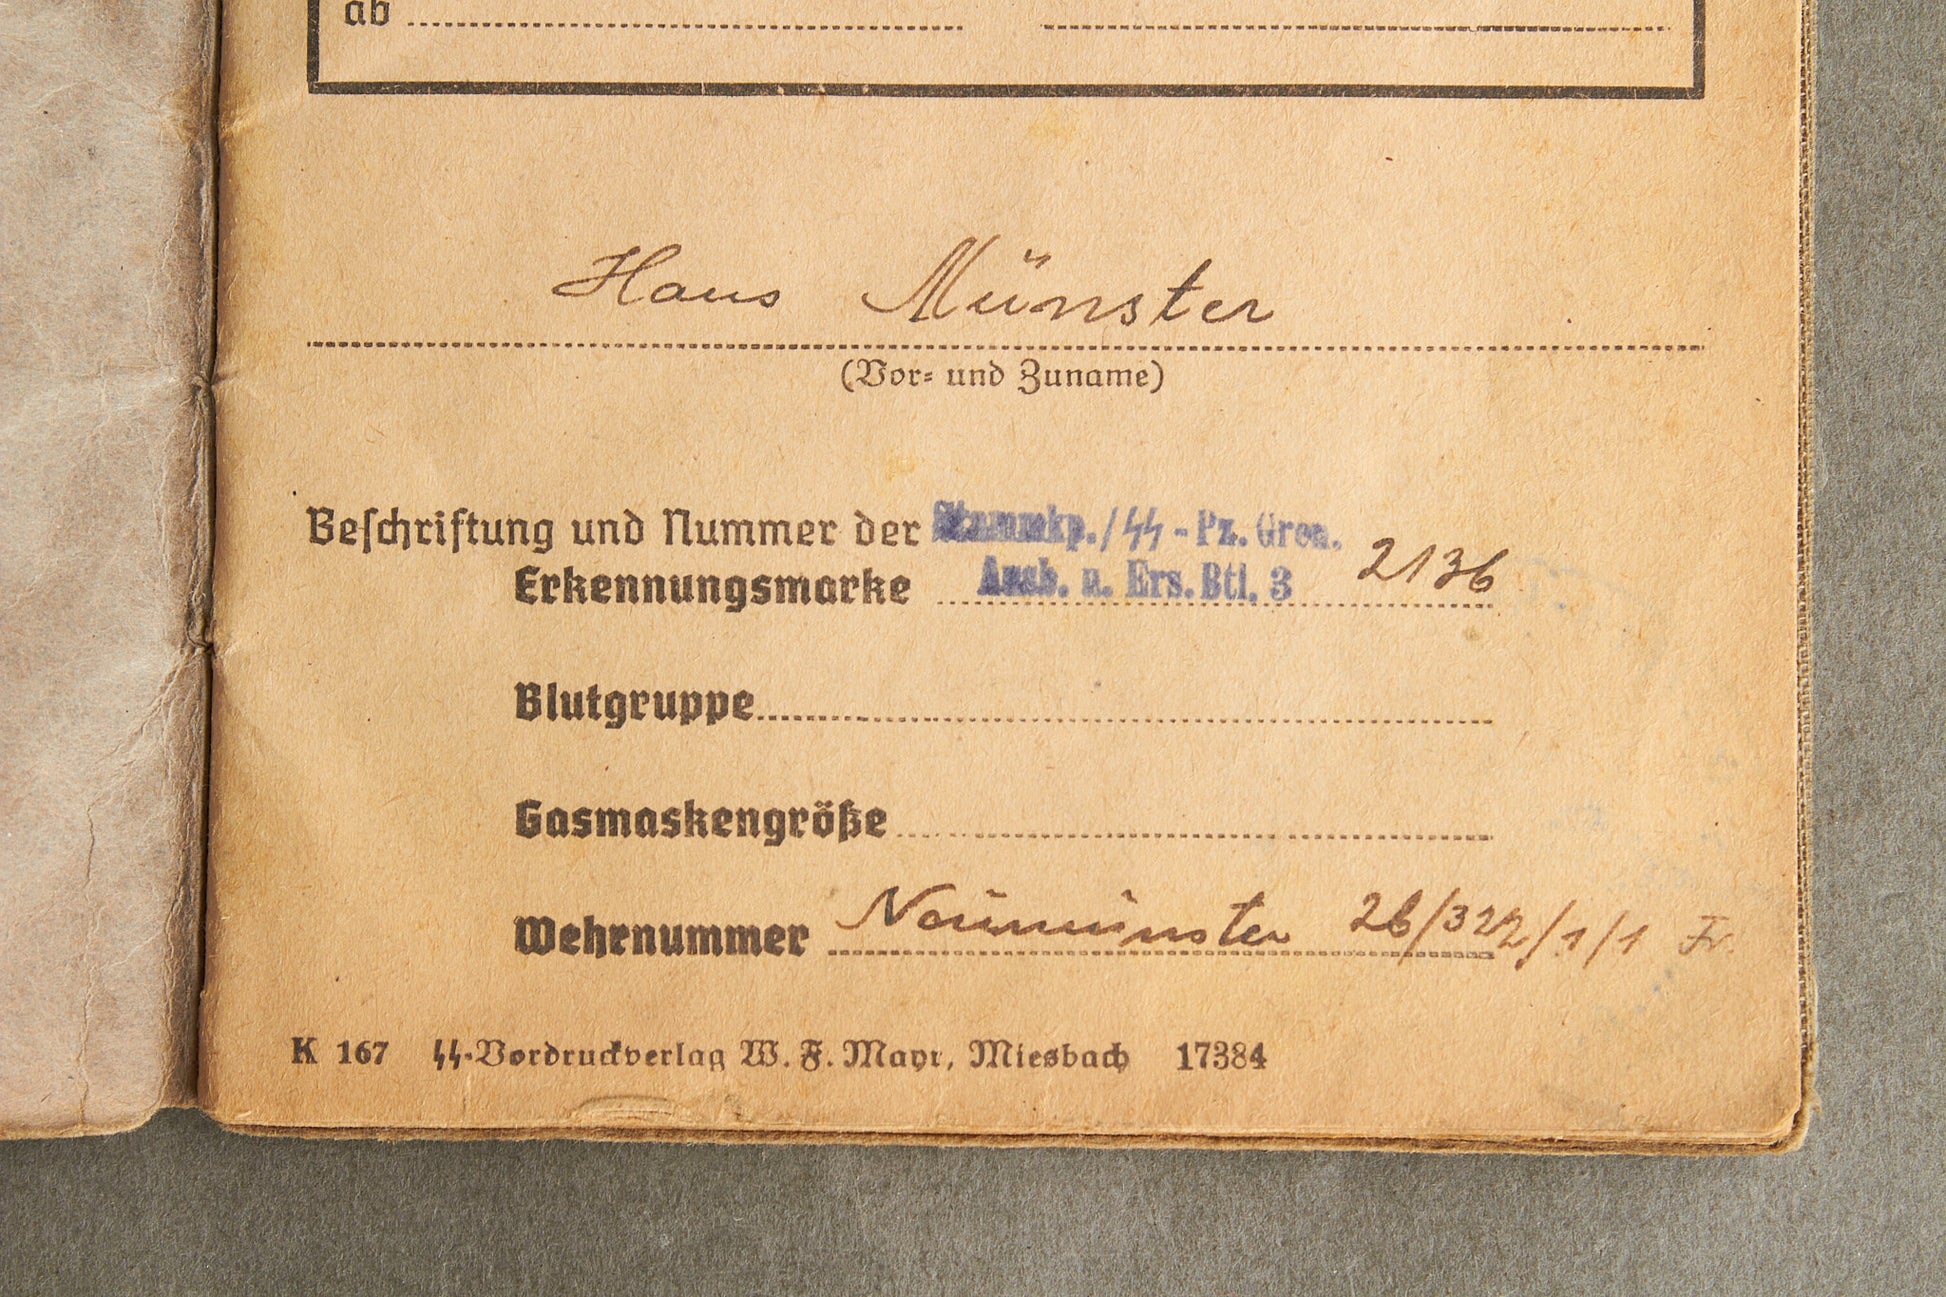 ab
Hans Münster
(Vor- und Zuname)
Beschriftung und Nummer der Stammkp./SS-Pz. Gren.
Erkennungsmarke Ausb. u. Ers. Btl. 3 2136
Blutgruppe
Gasmaskengröße
Wehrnummer Neumünster 26/322/1/1 Fr.
K 167 SS-Vordruckverlag W. F. Mayr, Miesbach 17384